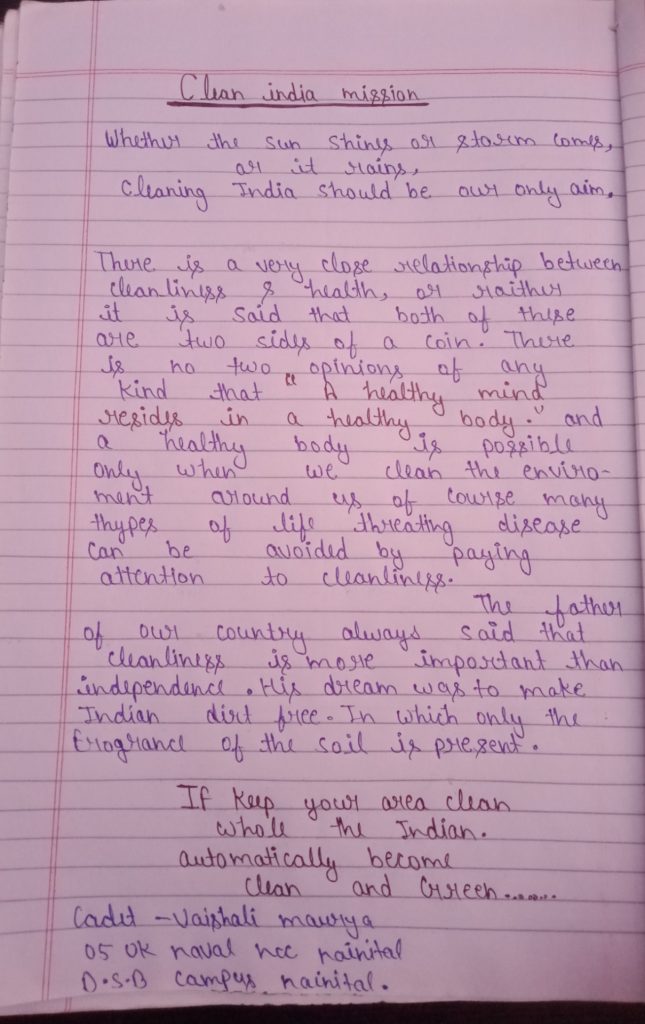 Clean india mission
Whether the sun shines or storm comes,
or it rains,
Cleaning India should be our only aim.
There is a very close relationship between
cleanliness & health, or raither
it is said that both of these
are two sides of a coin. There
is no two opinions of any
kind that "A healthy mind
resides in a healthy body." and
a healthy body is possible
only when we clean the enviro-
ment around us of course many
thypes of life threating disease
can be avoided by paying
attention to cleanliness.
The father
of our country always said that
cleanliness is more important than
independence. His dream was to make
Indian dirt free. In which only the
frogrance of the soil is present.
If keep your area clean
whole the Indian.
automatically become
clean and Green.......
Cadet - Vaishali maurya
05 UK naval ncc nainital
D.S.B campus nainital.